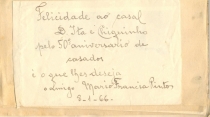 Felicidade ao casal
D. Ita e Chiquinho
pelo 50º aniversario de
casados
é o que lhes deseja
o amigo Mario Francisco Pintos
8-1-66.